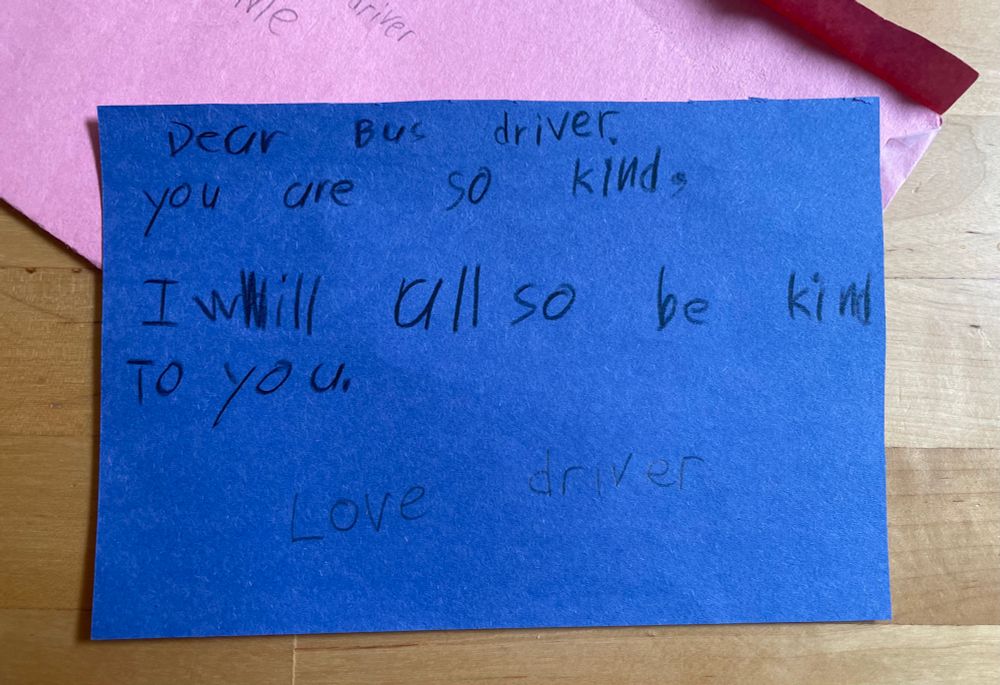 driver
Dear Bus driver.
you are so kind.
I will allso be kind
To you.
Love driver